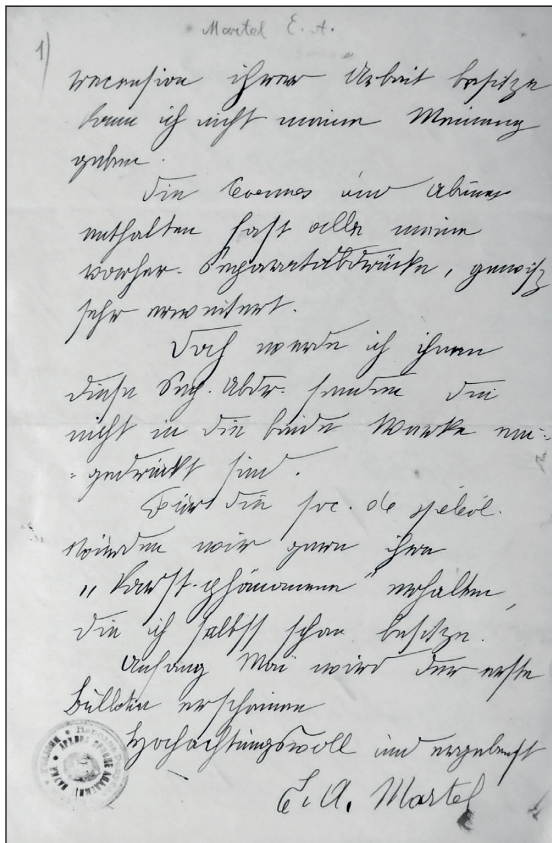 Martel E. A.
1)
recension ihrer Arbeit besitze
kann ich nicht meine Meinung
geben.
Die Cévennes und Abîmes
enthalten fast alle meine
vorher. Separatabdrücke, gewiss
sehr erweitert.
Doch werde ich ihnen
diese Sep. Abdr. senden die
nicht in die beide Werke ein-
-gedrückt sind.
Für die soc. de spéléol.
würden wir gern ihre
„Karst-phänomene" erhalten,
die ich selbst schon besitze.
Anfang Mai wird der erste
Bulletin erscheinen
Hochachtungsvoll und ergebenst
E. A. Martel